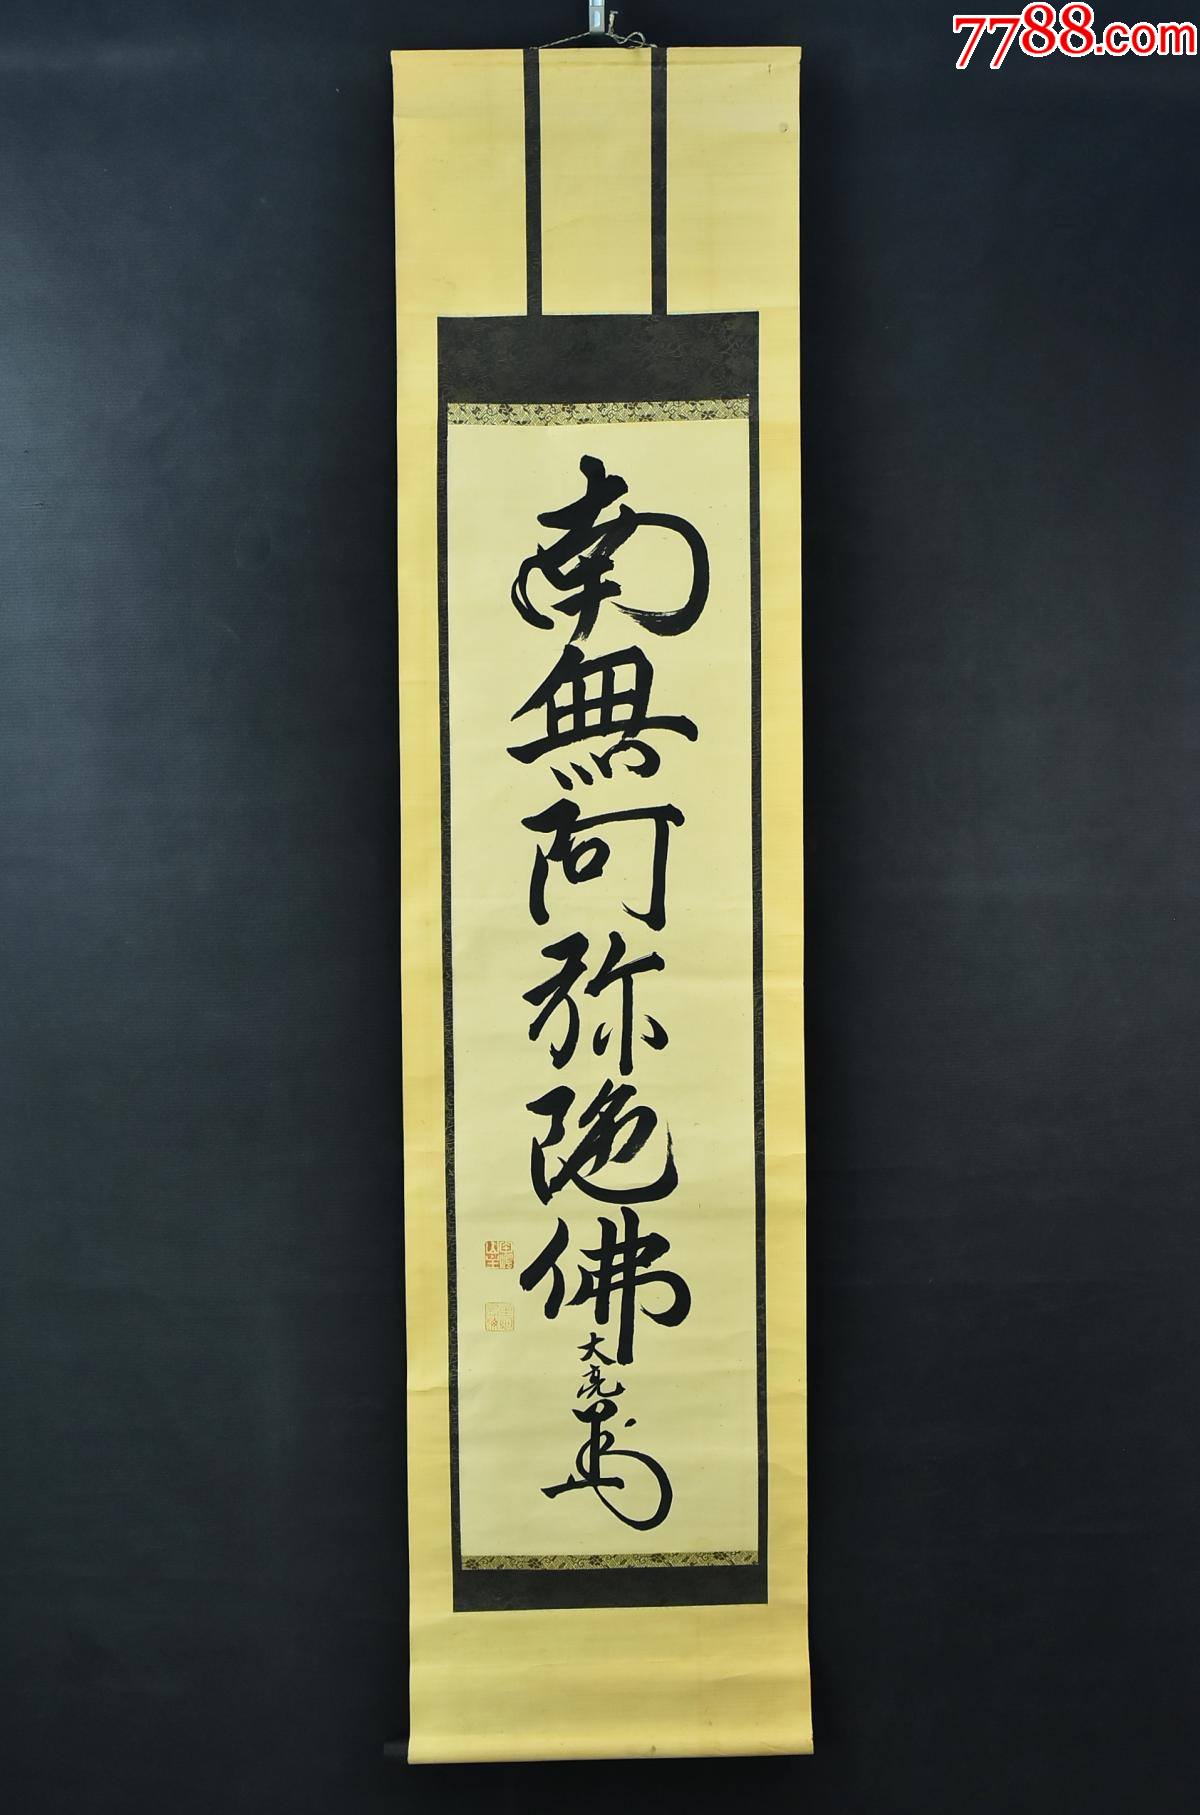 7788.com
南無阿弥陀佛
大亮